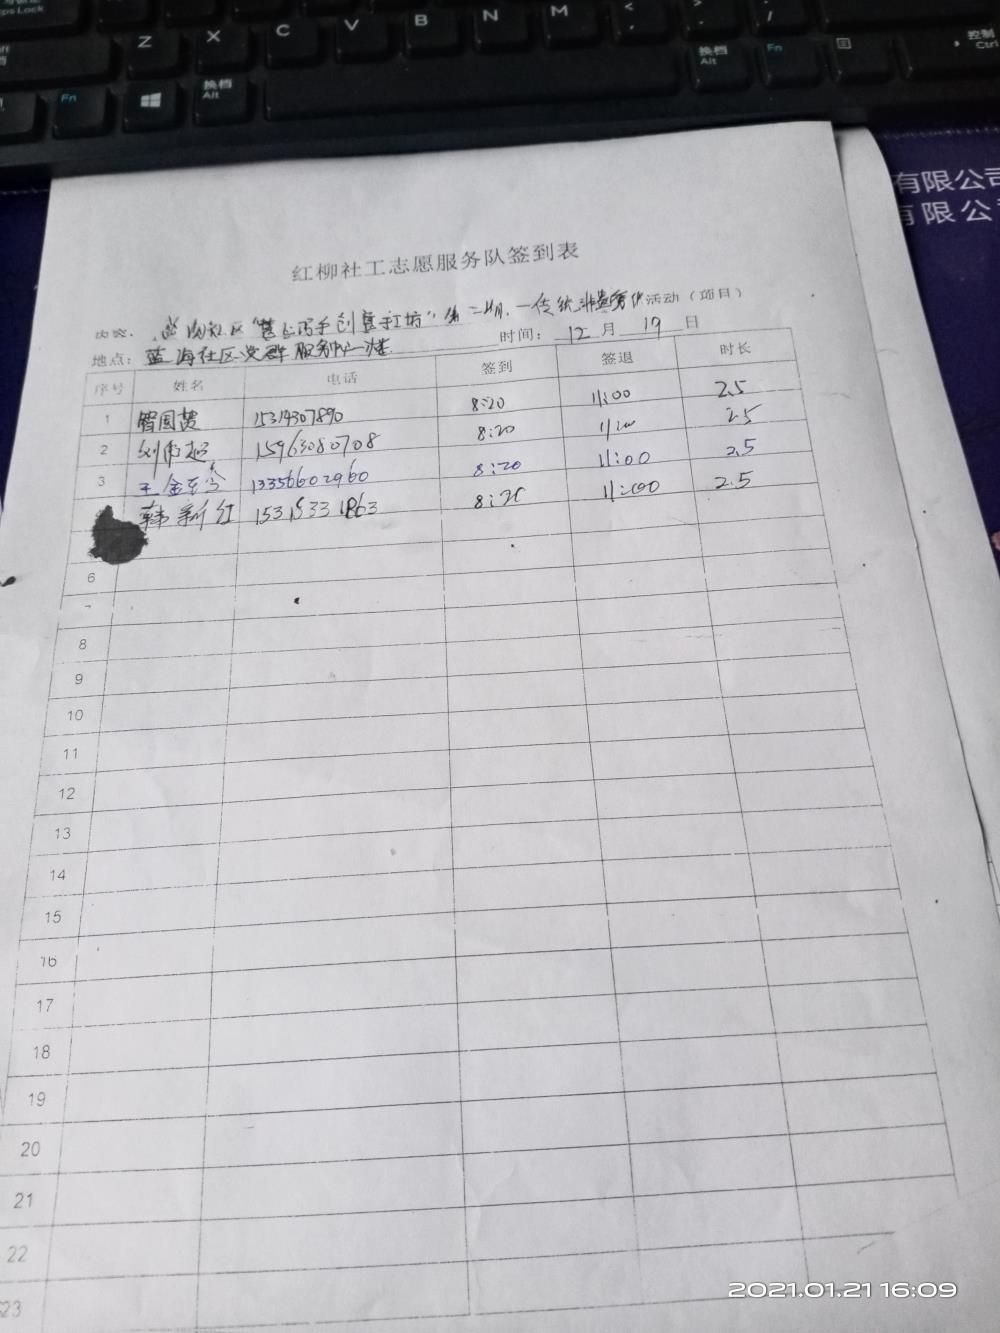 Z X C V B N M
Fn 换档 Alt 换档 Alt Fn 控制 Ctrl
有限公司
有限公
红柳社工志愿服务队签到表
内容: 社区 手创 第二期 一传统 活动（项目）
地点: 蓝海社区党群服务中心一楼 时间: 12 月 19 日
序号 姓名 电话 签到 签退 时长
1 15314307890 8:20 11:00 2.5
2 15963080708 8:20 11:00 2.5
3 王金 13356602960 8:20 11:00 2.5
韩新红 15315331863 8:20 11:00 2.5
6
7
8
9
10
11
12
13
14
15
16
17
18
19
20
21
22
23
2021.01.21 16:09